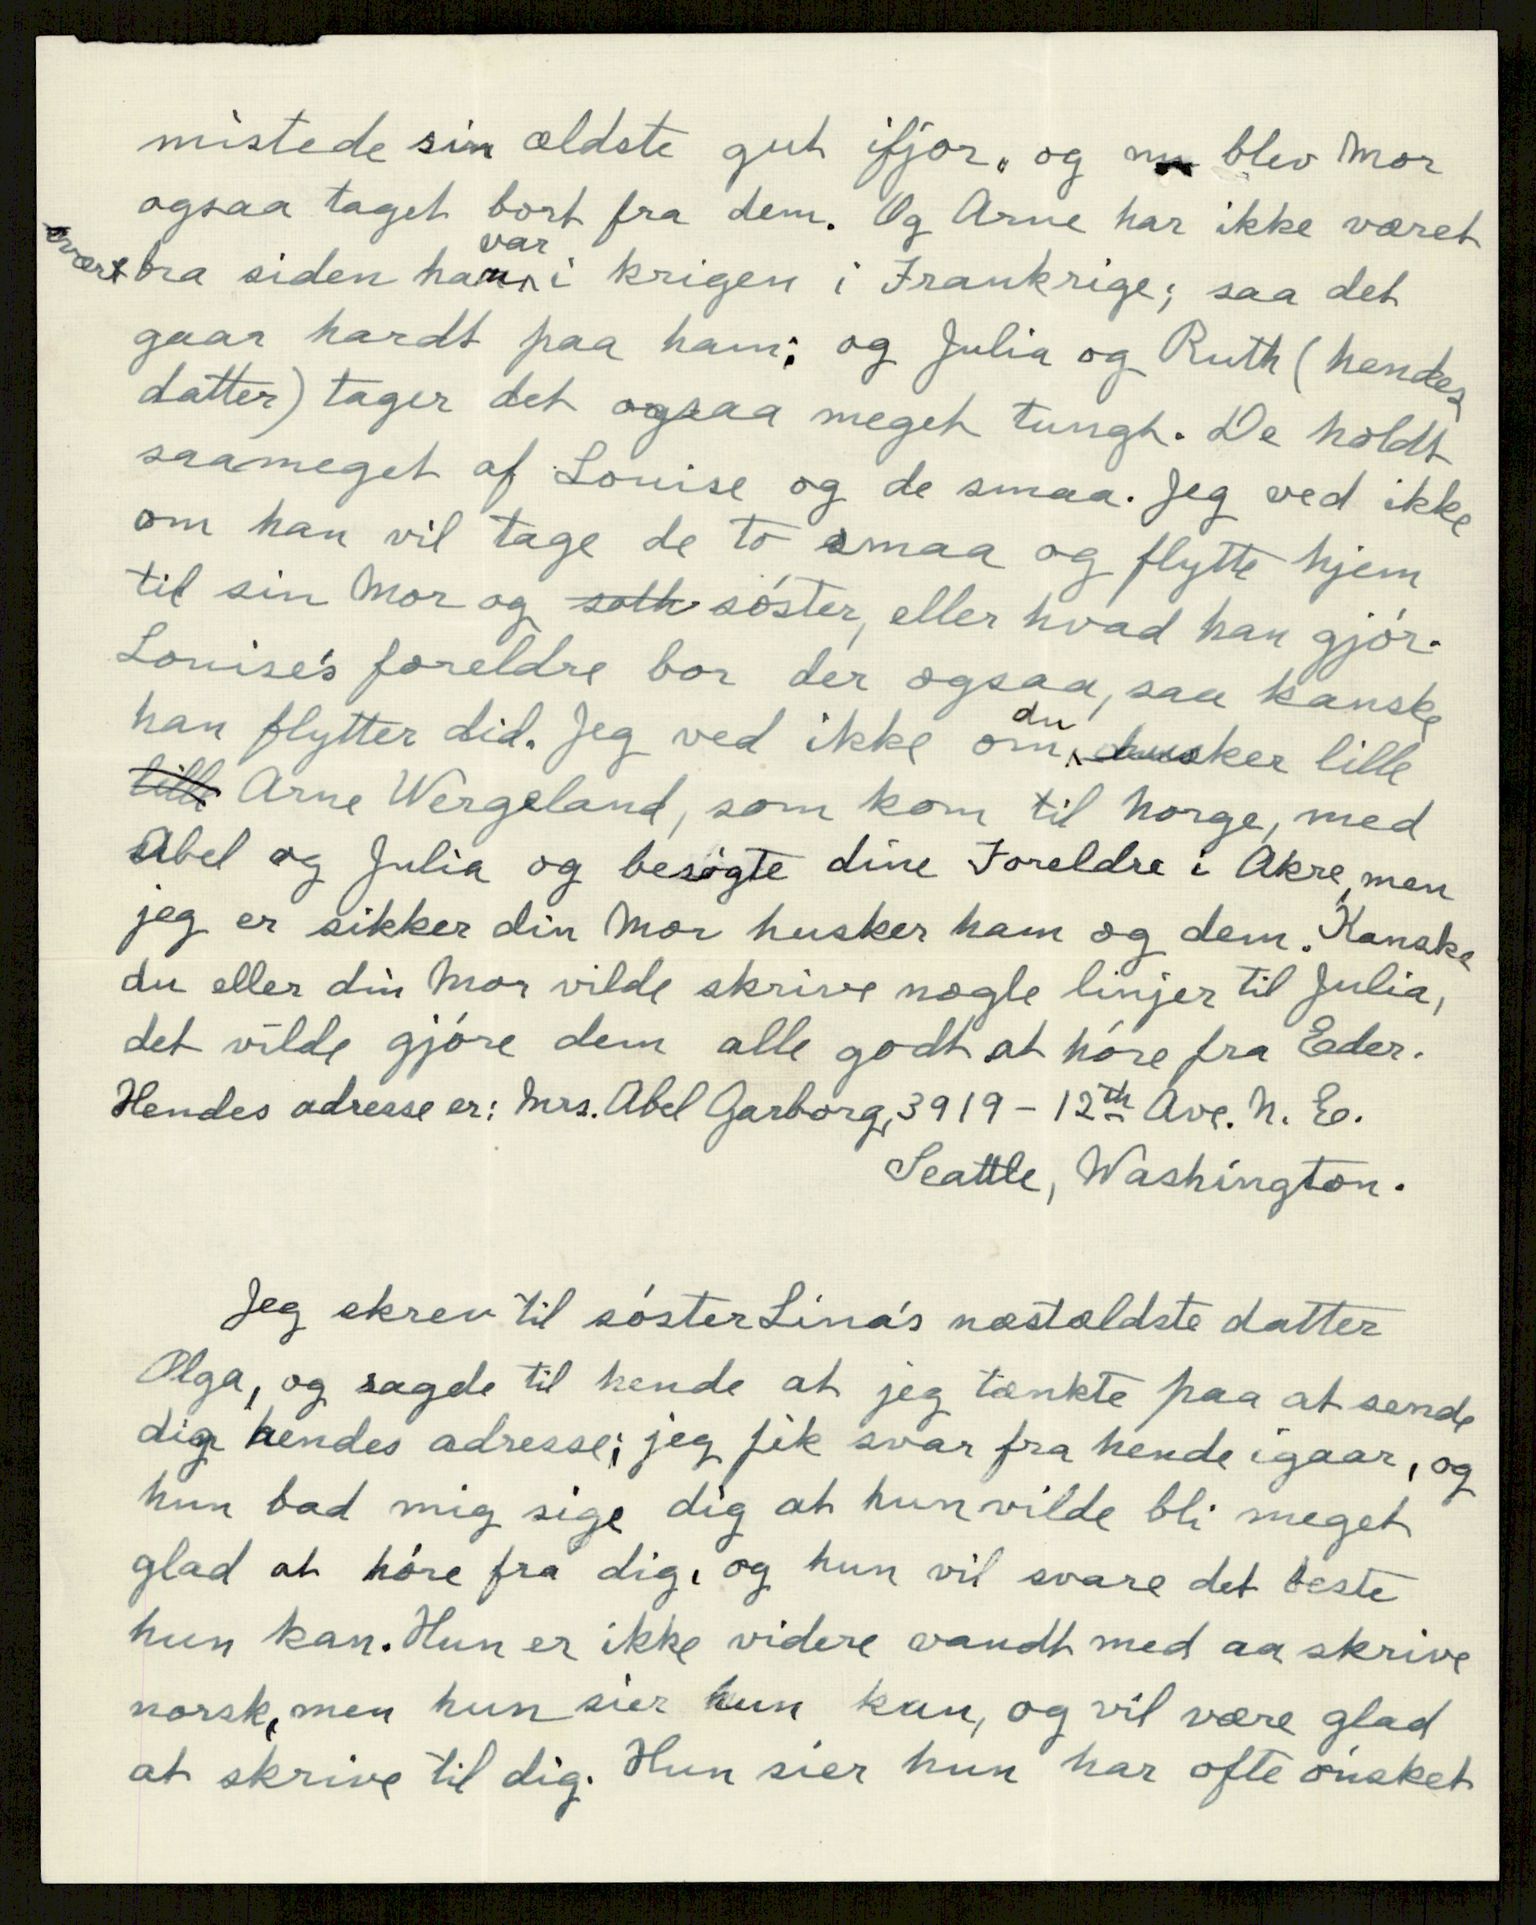 mistede sin ældste gut ifjor, og nu blev Mor
ogsaa taget bort fra dem. Og Arne har ikke været
svært bra siden han var i krigen i Frankrige; saa det
gaar hardt paa ham; og Julia og Ruth (hendes
datter) tager det ogsaa meget tungt. De holdt
saameget af Louise og de smaa. Jeg ved ikke
om han vil tage de to smaa og flytte hjem
til sin Mor og søster, eller hvad han gjór.
Louise's foreldre bor der ogsaa, saa kanske
han flytter did. Jeg ved ikke om du husker lille
Arne Wergeland, som kom til Norge, med
Abel og Julia og besógte dine Foreldre i Akre, men
jeg er sikker din Mor husker ham og dem. Kanske
du eller din Mor vilde skrive nogle linjer til Julia,
det vilde gjóre dem alle godt at hóre fra Eder.
Hendes adresse er: Mrs. Abel Garborg, 3919 - 12th Ave. N. E.
Seattle, Washington.
Jeg skrev til sóster Lina's næstældste datter
Olga, og sagde til hende at jeg tænkte paa at sende
dig hendes adresse; jeg fik svar fra hende igaar, og
hun bad mig sige dig at hun vilde bli meget
glad at hóre fra dig, og hun vil svare det beste
hun kan. Hun er ikke videre vandt med aa skrive
norsk, men hun sier hun kan, og vil være glad
at skrive til dig. Hun sier hun har ofte ónsket